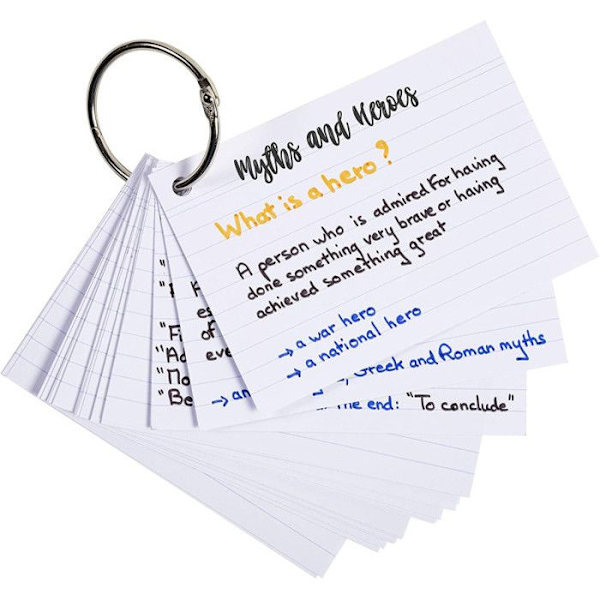 Myths and Heroes
What is a hero?
A person who is admired for having
done something very brave or having
achieved something great
→ a war hero
→ a national hero
Greek and Roman myths
→ an
es
of
eve
the end: "To conclude"
"Be